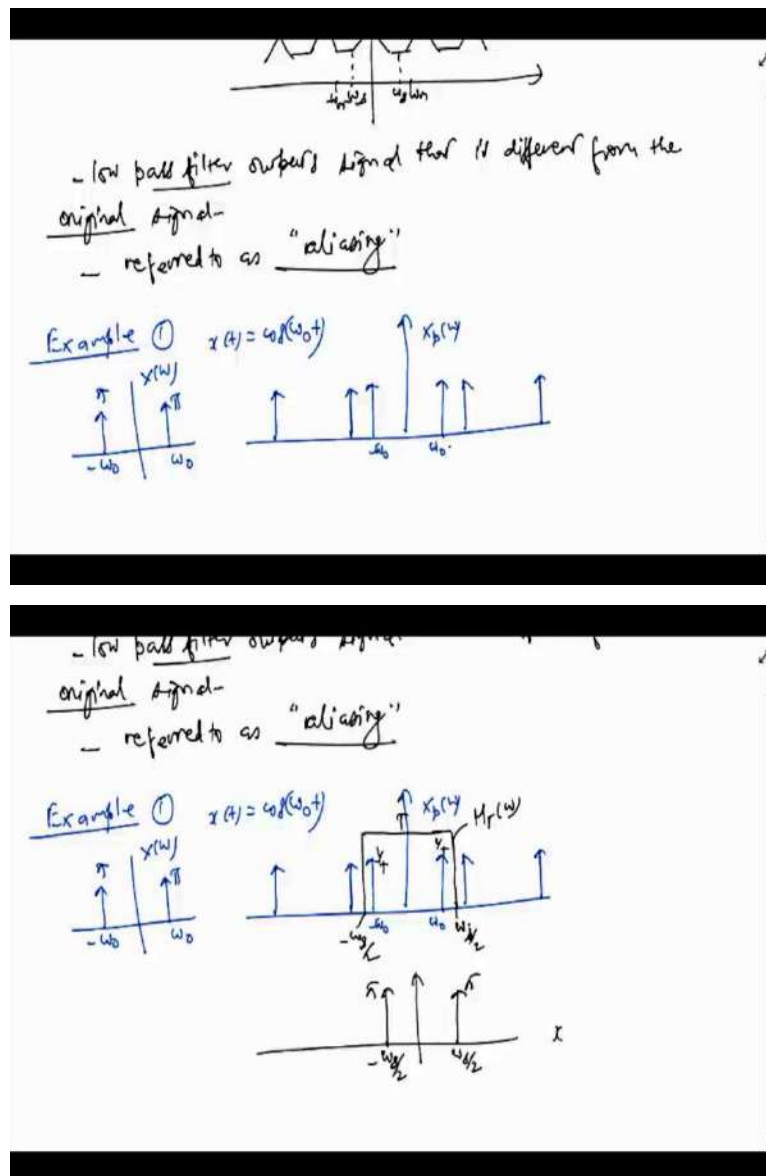 -ωm -ωs ωs ωm
- low pass filter outputs signal that is different from the
original signal-
- referred to as "aliasing"
Example ① x(t) = cos(ω0t) Xp(ω)
X(ω)
π π
-ω0 ω0 -ω0 ω0
- low pass filter outputs signal
original signal-
- referred to as "aliasing"
Example ① x(t) = cos(ω0t) Xp(ω) Hr(ω)
X(ω) T
π π π/T π/T
-ω0 ω0 -ω0 ω0
-ωs/2 ωs/2
π π
-ωs/2 ωs/2 x